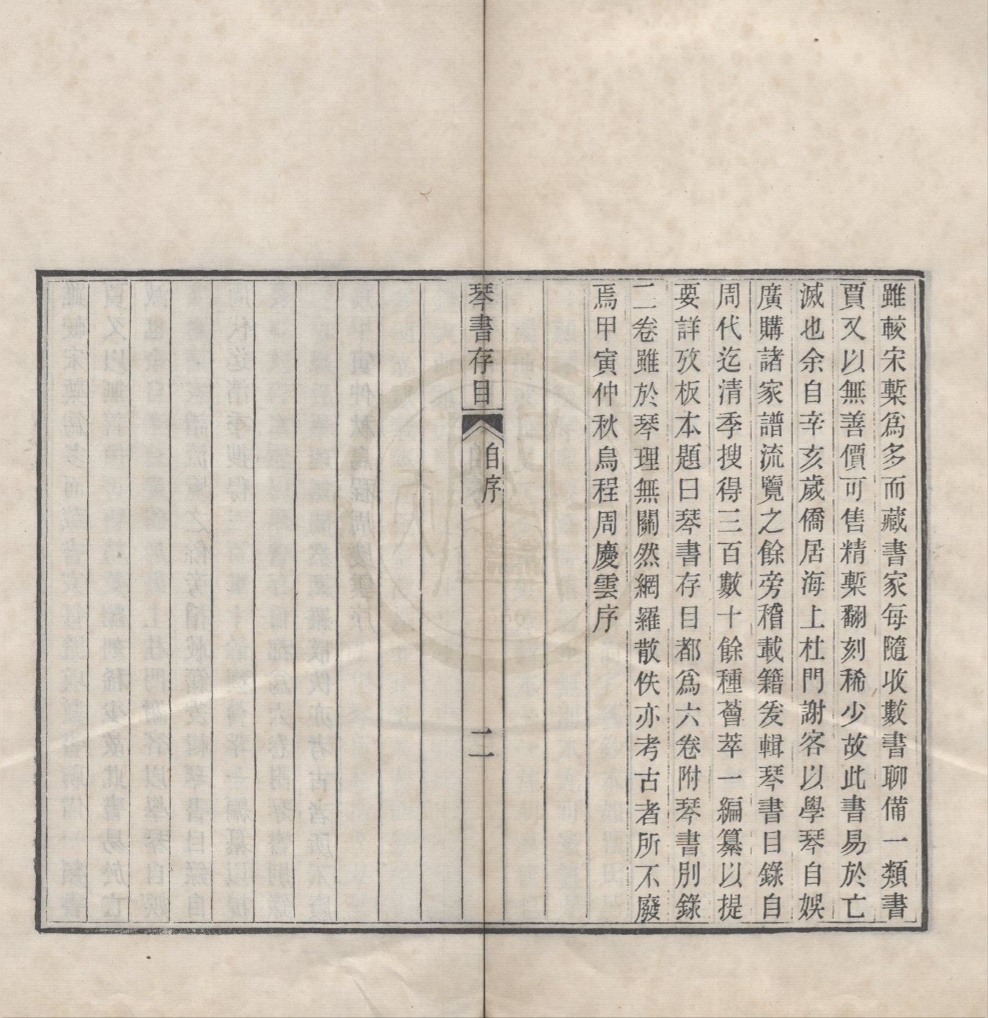 雖較宋槧爲多而藏書家每隨收數書聊備一類書
賈又以無善價可售精槧翻刻稀少故此書易於亡
滅也余自辛亥歲僑居海上杜門謝客以學琴自娛
廣購諸家譜流覽之餘旁稽載籍爰輯琴書目錄自
周代迄清季搜得三百數十餘種薈萃一編纂以提
要詳攷板本題曰琴書存目都爲六卷附琴書別錄
二卷雖於琴理無關然網羅散佚亦考古者所不廢
焉甲寅仲秋烏程周慶雲序
琴書存目 自序 二